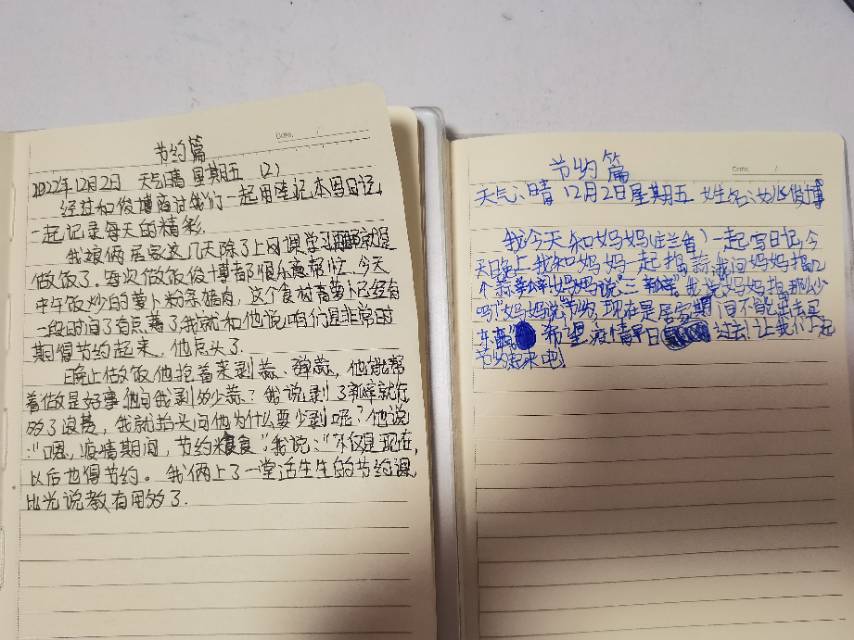 Date. /
节约篇
2022年12月2日 天气晴 星期五 (2)
经过和俊博商讨我们一起用笔记本写日记,
一起记录每天的精彩.
我娘俩居家这几天除了上网课学习就是
做饭了.每次做饭俊博都很乐意帮忙.今天
中午饭炒的萝卜粉条猪肉,这个食材青萝卜已经有
一段时间了有点蔫了我就和他说咱们是非常时
期得节约起来,他点头了.
晚上做饭他抢着来剥蒜、弹蒜,他能帮
着做是好事他问我剥多少蒜?我说剥了就行
够了浪费,我就抬头问他为什么要少剥呢?他说
:"嗯,疫情期间,节约粮食"我说:"不仅是现在,
以后也得节约。我俩上了一堂活生生的节约课
比光说教有用多了.
Date. /
节约篇
天气:晴 12月2日星期五 姓名:俊博
我今天和妈妈()一起写日记,今
天晚上我和妈妈一起捣蒜,我问妈妈捣几
个蒜妈妈说:三"我说妈妈捣那么少
吗?"妈妈说节约,现在是居家期间不能出去买
东西"希望疫情早日过去!让我们一起
节约起来吧!